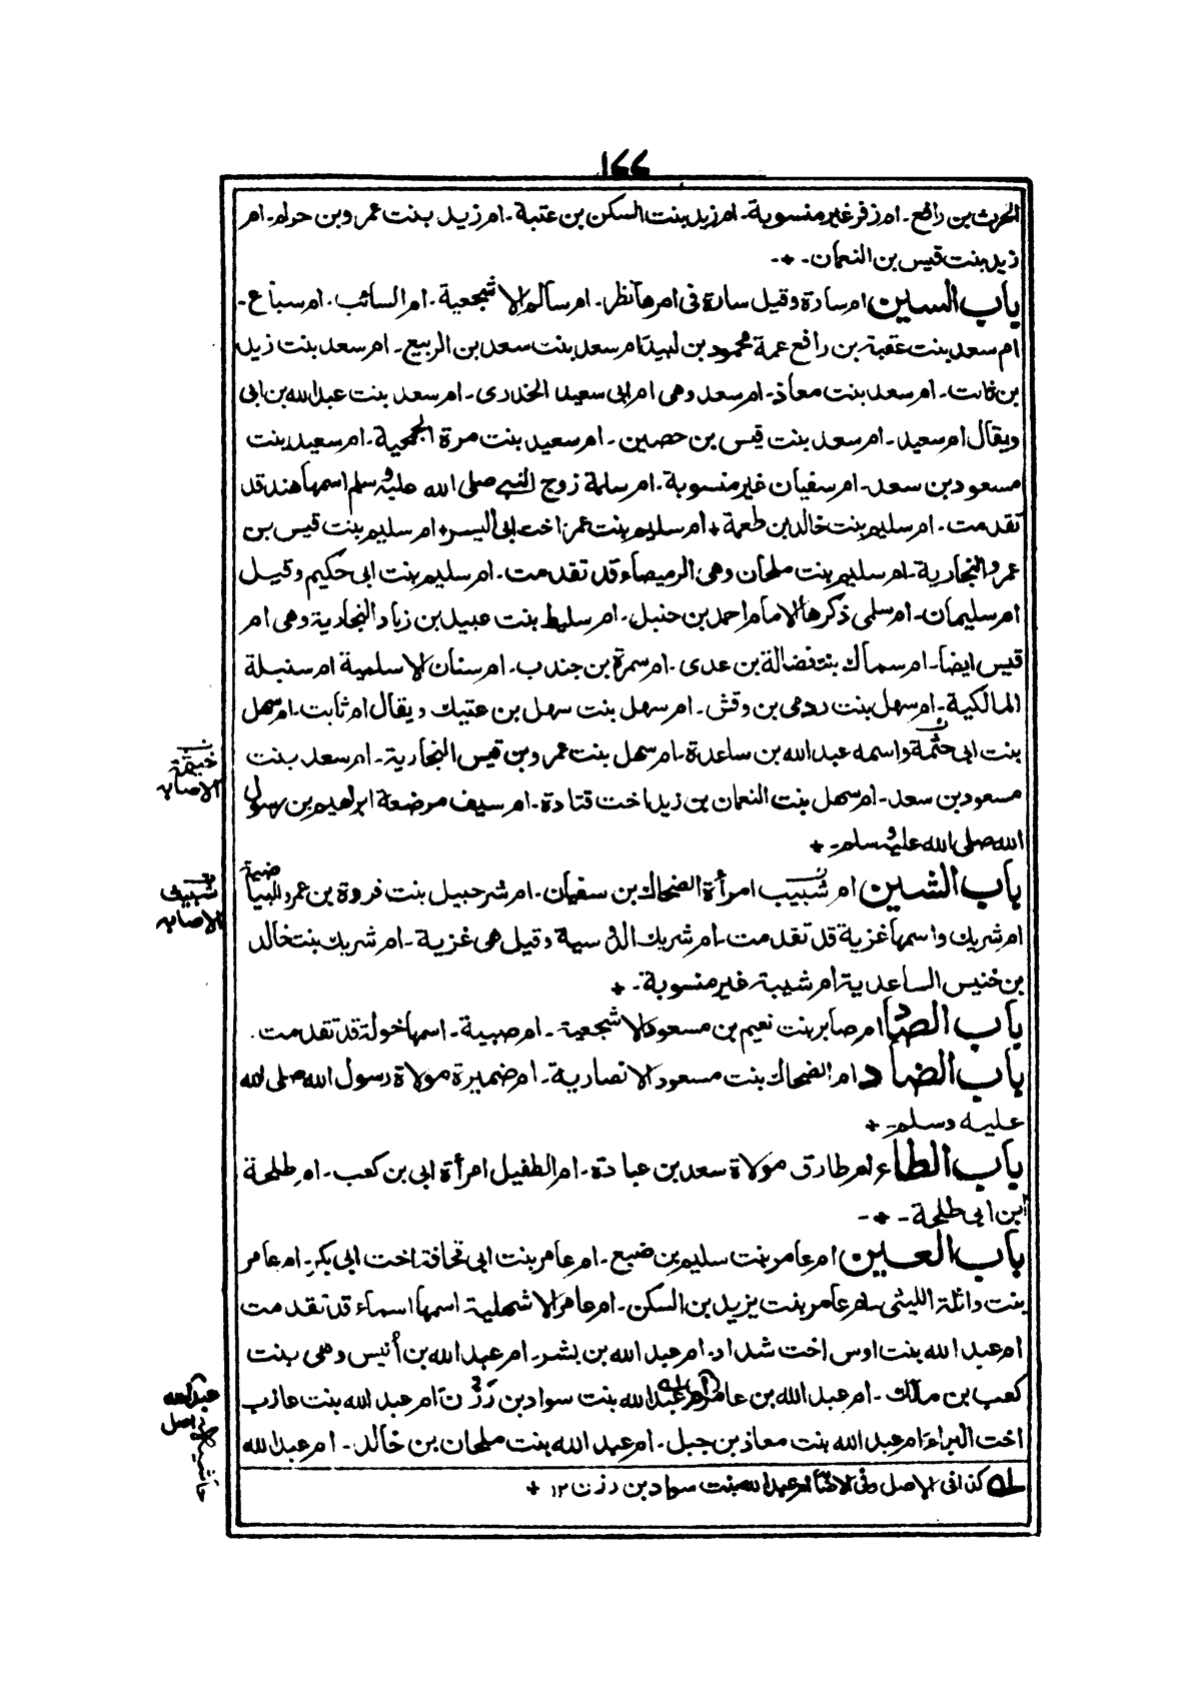 ١٧٧
الحرث بن رافع - ام زفر غير منسوبة - ام زيد بنت السكن بن عتبة - ام زيد بنت عمرو بن حرام - ام
زيد بنت قيس بن النعمان -
باب السين ام سارة وقيل سارة فى امرها نظر - ام سالم الاشجعية - ام السائب - ام سباع -
ام سعد بنت عقبة بن رافع عمة محمود بن لبيد ام سعد بنت سعد بن الربيع - ام سعد بنت زيد
بن ثابت - ام سعد بنت معاذ - ام سعد وهى ام ابى سعيد الخدرى - ام سعد بنت عبد الله بن ابى
ويقال ام سعيد - ام سعد بنت قيس بن حصين - ام سعيد بنت مرة الجمحية - ام سعيد بنت
مسعود بن سعد - ام سفيان غير منسوبة - ام سلمة زوج النبى صلى الله عليه وسلم اسمها هند قد
تقدمت - ام سليم بنت خالد بن طعمة + ام سليم بنت عمرو اخت ابى اليسر + ام سليم بنت قيس بن
عمرو النجارية - ام سليم بنت ملحان وهى الرميصاء قد تقدمت - ام سليم بنت ابى حكيم وقيل
ام سليمان - ام سلمى ذكرها الامام احمد بن حنبل - ام سليط بنت عبيد بن زياد النجارية وهى ام
قيس ايضا - ام سماك بنت فضالة بن عدى - ام سمرة بن جندب - ام سنان الاسلمية ام سنبلة
المالكية - ام سهل بنت رومى بن وقش - ام سهل بنت سهل بن عتيك ويقال ام ثابت - ام سهل
بنت ابى حثمة واسمه عبد الله بن ساعدة - ام سهل بنت عمرو بن قيس النجارية - ام سعد بنت
مسعود بن سعد - ام سهل بنت النعمان بن زيد اخت قتادة - ام سيف مرضعة ابراهيم بن رسول
الله صلى الله عليه وسلم - +
باب الشين ام شبيب امرأة الضحاك بن سفيان - ام شرحبيل بنت فروة بن عمرو البياضية
ام شريك واسمها غزية قد تقدمت - ام شريك الدوسية وقيل هى غزية - ام شريك بنت خالد
بن خنيس الساعدية ام شيبة غير منسوبة - +
باب الصاد ام صابر بنت نعيم بن مسعود الاشجعية - ام صبية - اسمها خولة قد تقدمت .
باب الضاد ام الضحاك بنت مسعود الانصارية - ام ضميرة مولاة رسول الله صلى الله
عليه وسلم - +
باب الطاء ام طارق مولاة سعد بن عبادة - ام الطفيل امرأة ابى بن كعب - ام طلحة
ابن ابى طلحة - + -
باب العين ام عامر بنت سليم بن ضبع - ام عامر بنت ابى قحافة اخت ابى بكر - ام عامر
بنت واثلة الليثى - ام عامر بنت يزيد بن السكن - ام عامر الاشهلية اسمها اسماء قد تقدمت
ام عبد الله بنت اوس اخت شداد - ام عبد الله بن بشر - ام عبد الله بن أنيس وهى بنت
كعب بن مالك - ام عبد الله بن عامر ام عبد الله بنت سواد بن رزن ام عبد الله بنت عازب
اخت البراء ام عبد الله بنت معاذ بن جبل - ام عبد الله بنت ملحان بن خالد - ام عبد الله
له كذا فى الاصل وفى الاصابة ام عبد الله بنت سواد بن رزن ١٢ +
خيثمة
الاصابه
شبيث
الاصابه
عبد الله
اصل
حاشية